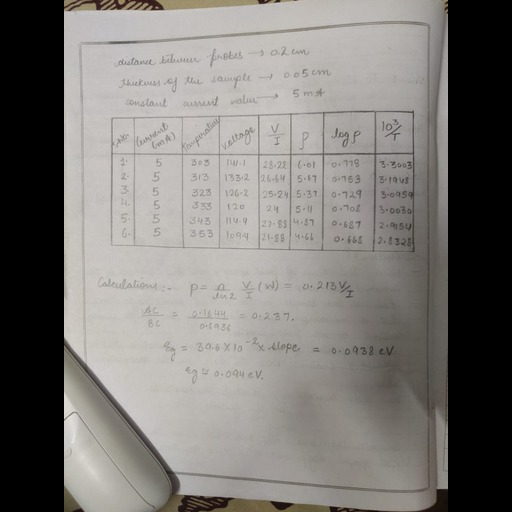 distance between probes → 0.2 cm
thickness of the sample → 0.05 cm
constant current value → 5 mA
S.No. Current (mA) Temperature Voltage V/I ρ log ρ 10³/T
1. 5 303 141.1 28.22 6.01 0.778 3.3003
2. 5 313 133.2 26.64 5.67 0.753 3.1948
3. 5 323 126.2 25.24 5.37 0.729 3.0959
4. 5 333 120 24 5.11 0.708 3.0030
5. 5 343 114.4 22.88 4.87 0.687 2.9154
6. 5 353 109.4 21.88 4.66 0.668 2.8328
Calculations :- ρ = a/ln2 V/I (W) = 0.213 V/I
AC/BC = 0.1644/0.6936 = 0.237.
Eg = 39.6 × 10⁻² × slope = 0.0938 eV
Eg ≈ 0.094 eV.